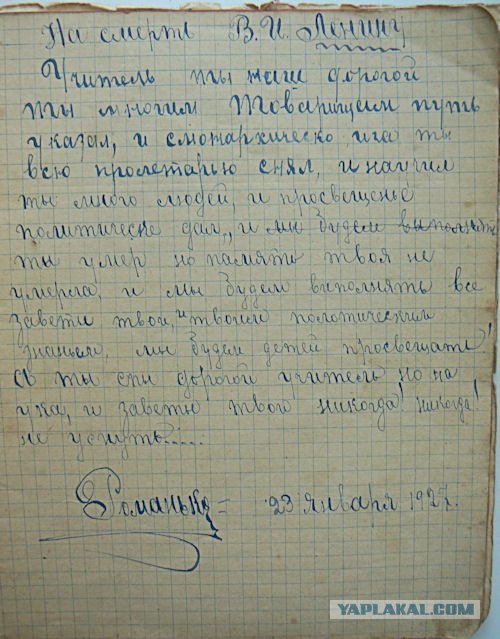 На смерть В. И. Ленину
Учитель ты наш дорогой
ты многим товарищам путь
указал, и смонархическо ига ты
всю пролетарью снял, и научил
ты много людей, и просвещенье
политическе дал,, и мы будем выполнять
ты умер но память твоя не
умерла, и мы будем выполнять все
завети твои, и твоим политическим
знаньем, мы будем детей просвещать!
А ты спи дорогой учитель но на
ука, и заветы твои никогда! никогда!
не уснуть.....
Романько = 23 января 1927.
YAPLAKAL.COM